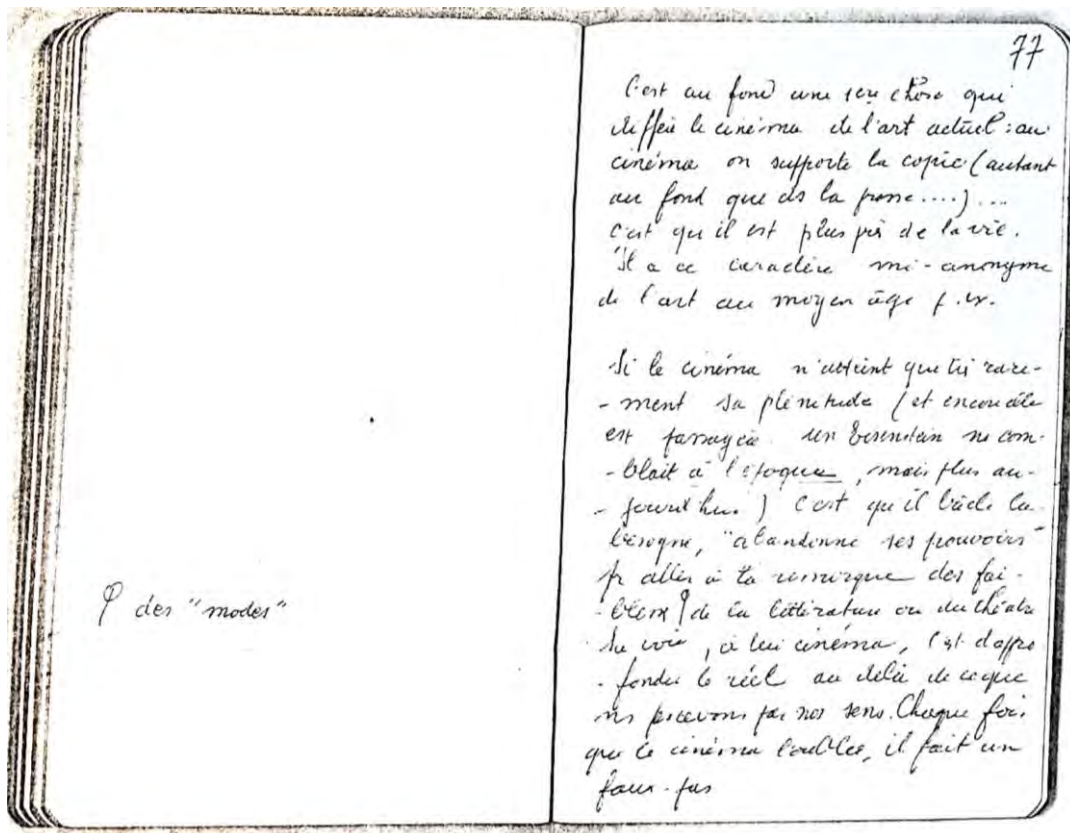 φ des "modes"
77
C'est au fond une seu chose qui
diffère le cinéma de l'art actuel : au
cinéma on supporte la copie (autant
au fond que ds la prose ....) ...
c'est qu'il est plus près de la vie.
Il a ce caractère mi-anonyme
de l'art au moyen âge
Si le cinéma n'atteint que très rare-
- ment sa plénitude (et encore elle
est passagère. un Eisenstein ns com-
- blait à l'époque, mais plus au-
- jourd'hui) c'est qu'il bâcle la
besogne, "abandonne ses pouvoirs"
pr aller à la remorque des fai-
- blesses φ de la littérature ou du théâtre
Sa voie, à lui cinéma, c'est d'appro
- fondir le réel au delà de ce que
ns percevons par nos sens. Chaque fois
que le cinéma l'oublie, il fait un
faux-pas